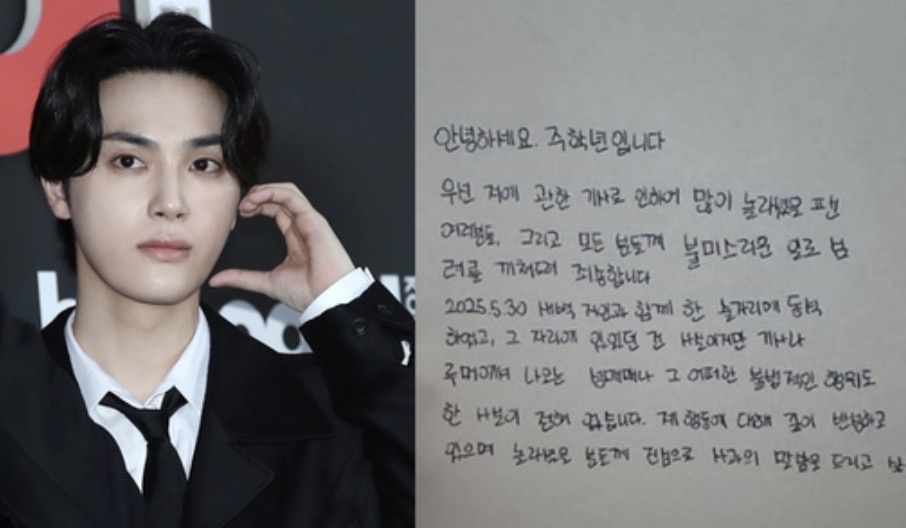 안녕하세요. 주학년입니다
우선 저에 관한 기사로 인하여 많이 놀라셨을 팬
여러분들, 그리고 모든 분들께 불미스러운 일로 심
려를 끼쳐드려 죄송합니다
2025.5.30 새벽 지인과 함께 한 술자리에 동석
하였고, 그 자리에 있었던 건 사실이지만 기사나
루머에서 나오는 성매매나 그 어떠한 불법적인 행위도
한 사실이 전혀 없습니다. 제 행동에 대해 깊이 반성하고
있으며 놀라셨을 분들께 진심으로 사과의 말씀을 드리고 싶